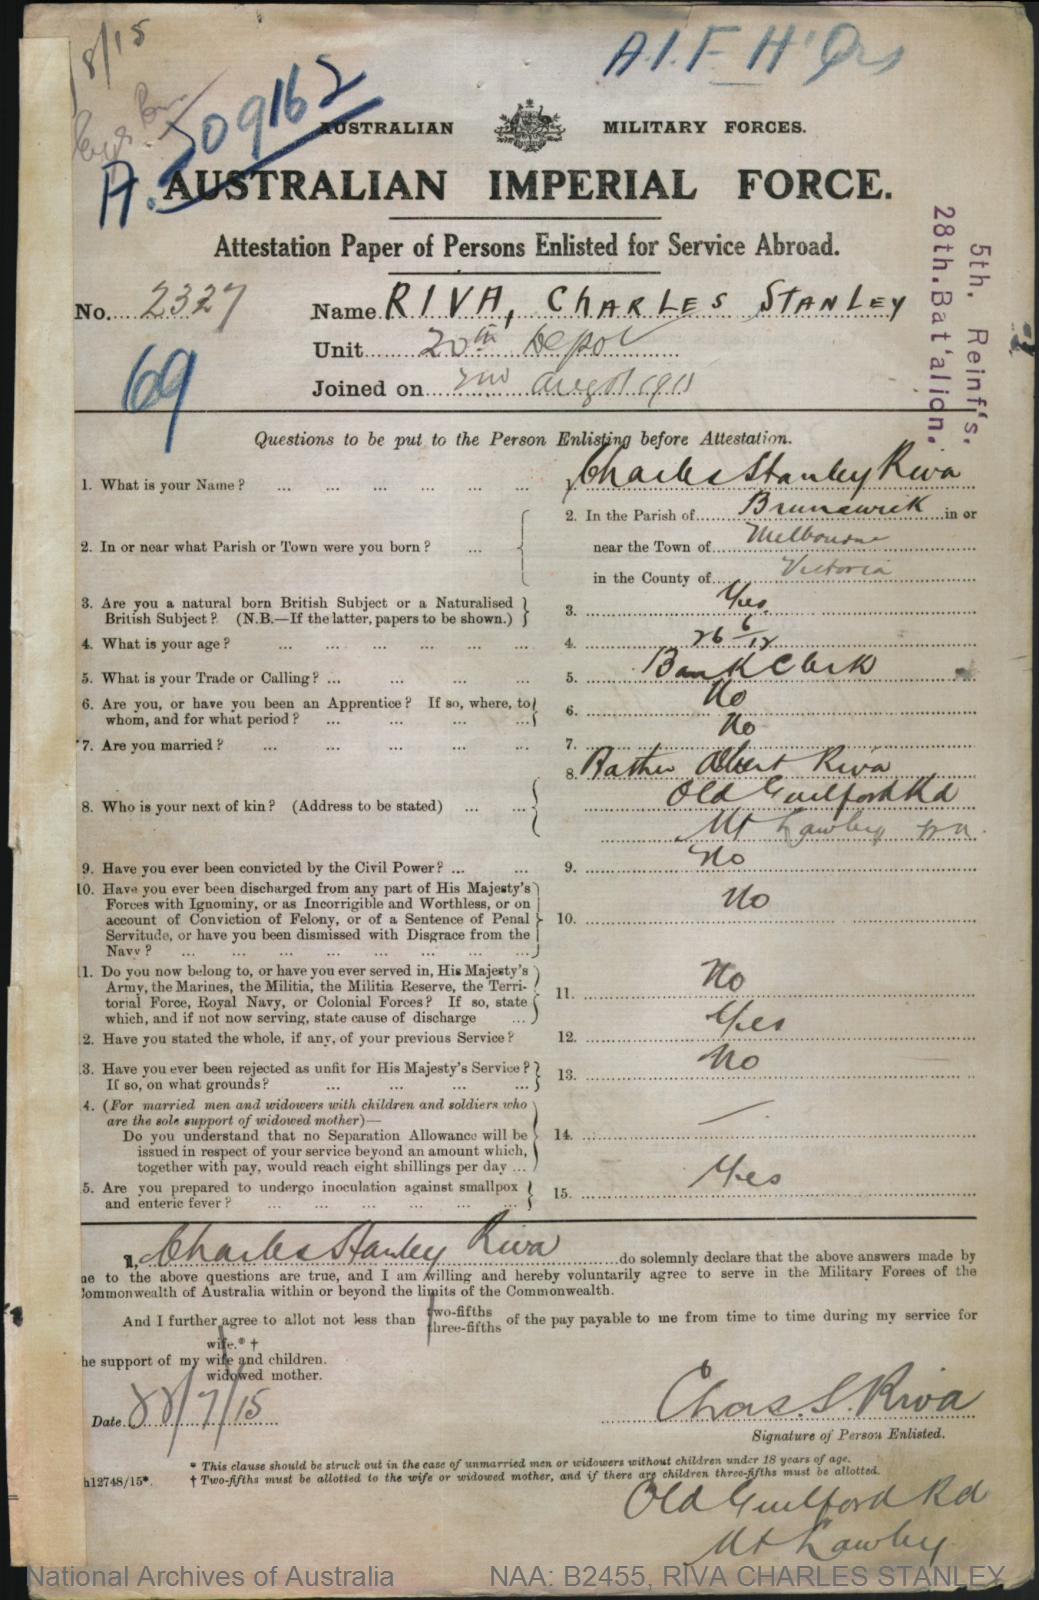 8/15
A.I.F H'Qrs
A. 509162
AUSTRALIAN MILITARY FORCES.
AUSTRALIAN IMPERIAL FORCE.
Attestation Paper of Persons Enlisted for Service Abroad.
5th. Reinf's.
28th. Bat'alion.
No. 2327 Name RIVA, CHARLES STANLEY
Unit 20th Depot
69
Joined on 2nd August 1915
Questions to be put to the Person Enlisting before Attestation.
1. What is your Name? ... Charles Stanley Riva
2. In or near what Parish or Town were you born? ...
2. In the Parish of Brunswick in or
near the Town of Melbourne
in the County of Victoria
3. Are you a natural born British Subject or a Naturalised
British Subject? (N.B.—If the latter, papers to be shown.)
3. Yes
4. What is your age? ... 4. 26 6/12
5. What is your Trade or Calling? ... 5. Bank Clerk
6. Are you, or have you been an Apprentice? If so, where, to
whom, and for what period? ... 6. No
*7. Are you married? ... 7. No
8. Who is your next of kin? (Address to be stated) ...
8. Father Albert Riva
Old Guilford Rd
Mt Lawley
9. Have you ever been convicted by the Civil Power? ... 9. No
10. Have you ever been discharged from any part of His Majesty's
Forces with Ignominy, or as Incorrigible and Worthless, or on
account of Conviction of Felony, or of a Sentence of Penal
Servitude, or have you been dismissed with Disgrace from the
Navy? ... 10. No
11. Do you now belong to, or have you ever served in, His Majesty's
Army, the Marines, the Militia, the Militia Reserve, the Terri-
torial Force, Royal Navy, or Colonial Forces? If so, state
which, and if not now serving, state cause of discharge ... 11. No
2. Have you stated the whole, if any, of your previous Service? 12. Yes
3. Have you ever been rejected as unfit for His Majesty's Service?
If so, on what grounds? ... 13. No
4. (For married men and widowers with children and soldiers who
are the sole support of widowed mother)—
Do you understand that no Separation Allowance will be
issued in respect of your service beyond an amount which,
together with pay, would reach eight shillings per day ... 14. —
5. Are you prepared to undergo inoculation against smallpox
and enteric fever? ... 15. Yes
I, Charles Stanley Riva do solemnly declare that the above answers made by
me to the above questions are true, and I am willing and hereby voluntarily agree to serve in the Military Forces of the
Commonwealth of Australia within or beyond the limits of the Commonwealth.
And I further agree to allot not less than two-fifths three-fifths of the pay payable to me from time to time during my service for
wife.* †
he support of my wife and children.
widowed mother.
Date 22/7/15
Chas. S. Riva
Signature of Person Enlisted.
* This clause should be struck out in the case of unmarried men or widowers without children under 18 years of age.
h12748/15*. † Two-fifths must be allotted to the wife or widowed mother, and if there are children three-fifths must be allotted.
Old Guilford Rd
Mt Lawley
National Archives of Australia NAA: B2455, RIVA CHARLES STANLEY